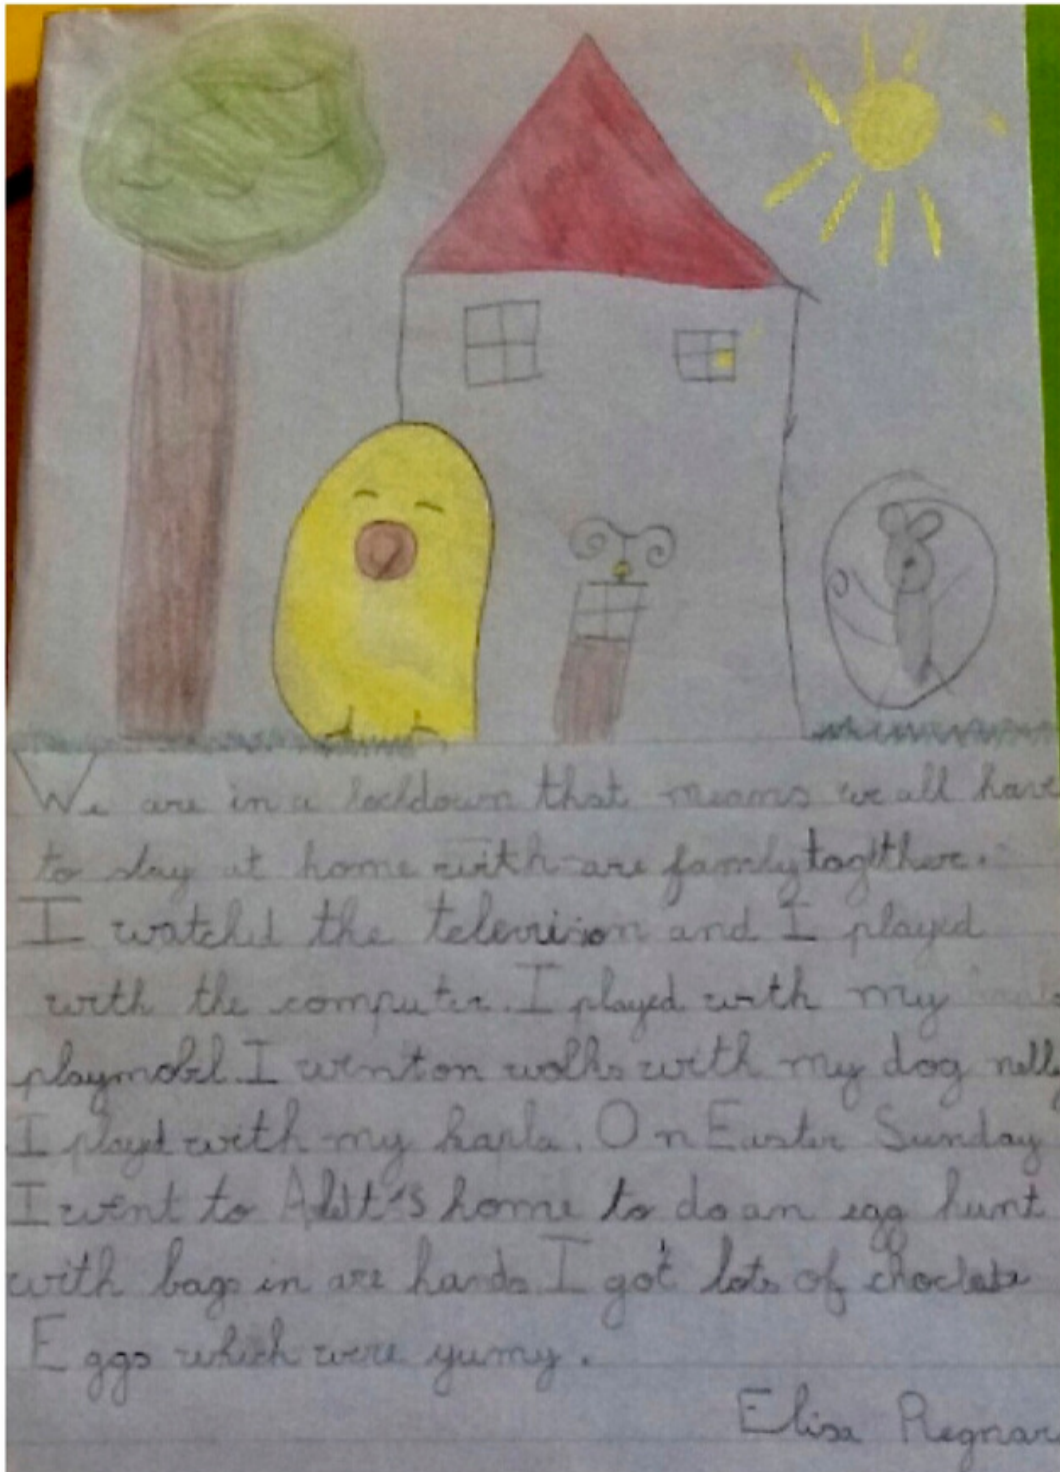 We are in a lockdown that means we all have
to stay at home with are family togther.
I watchd the television and I played
with the computer. I played with my
playmobl. I went on walks with my dog nelly
I played with my kapla. On Easter Sunday
I went to home to do an egg hunt
with bags in are hands. I got lots of choclate
Eggs which were yumy.
Elisa Regnar